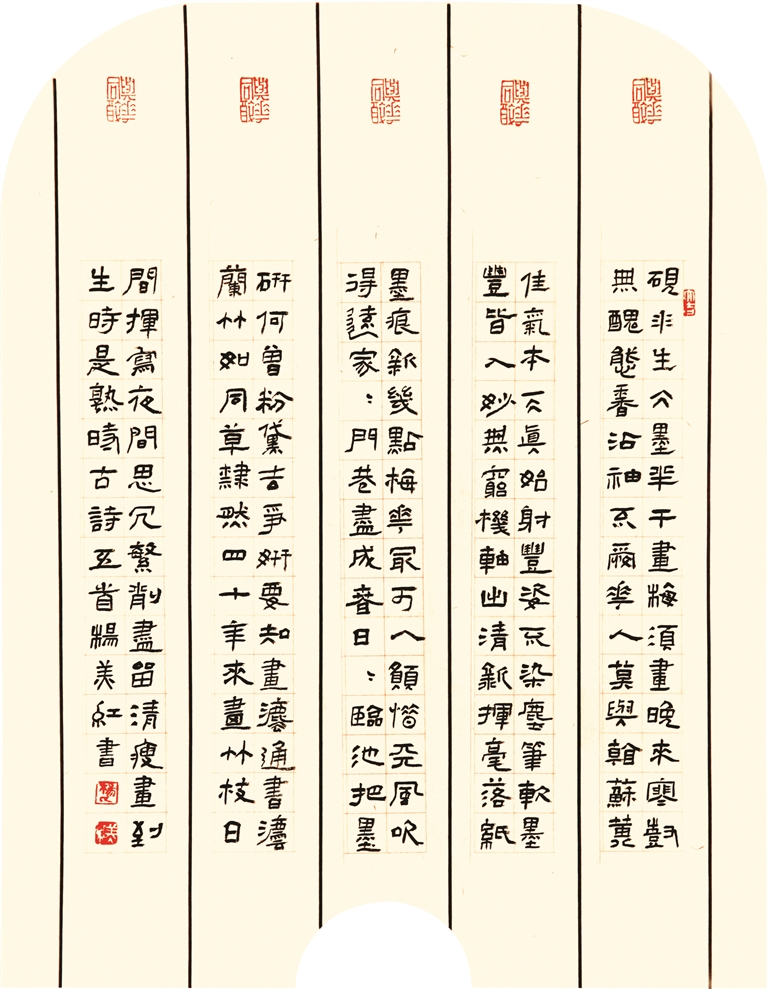 硯水生仌墨半干畫梅須畫晚來寒尌
無醜態香沾袖不愛華人莫與看蘇黃
佳氣本天真姑射豐姿不染塵筆軟墨
豐皆入妙無窮機軸出清新揮毫落紙
墨痕新幾點梅華最可人願借天風吹
得遠家〻門巷盡成春日〻臨池把墨
研何曾粉黛去爭妍要知畫灋通書灋
蘭竹如同草隸然四十年來畫竹枝日
間揮寫夜間思冗繁削盡留清瘦畫到
生時是熟時古詩五首楊美紅書